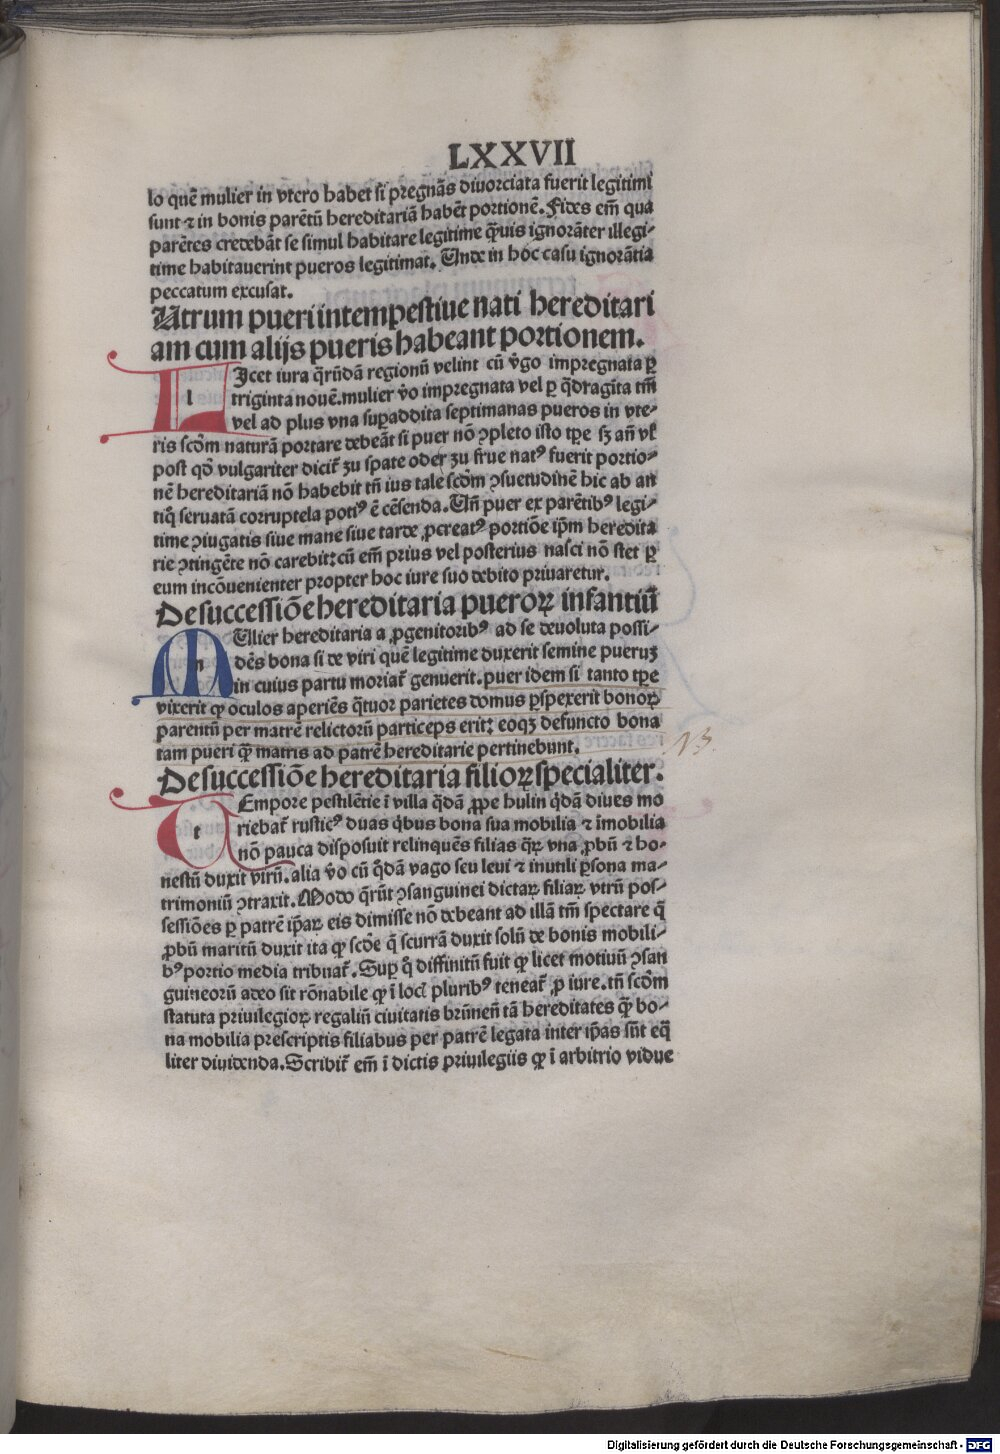 LXXVII
lo quē mulier in vtero habet si pregnās diuorciata fuerit legitimi
sunt ⁊ in bonis parētū hereditariā habēt portionē. Fides em̄ qua
parētes credebāt se simul habitare legitime q̄uis ignorāter illegi-
time habitauerint pueros legitimat. Unde in hoc casu ignorātia
peccatum excusat.
Utrum pueri intempestiue nati hereditari
am cum alijs pueris habeant portionem.
l Icet iura q̄rūdā regionū velint cū v̓go impregnata ꝑ
triginta nouē. mulier v̓o impregnata vel ꝑ q̄dragīta tm̄
vel ad plus vna suꝑaddita septimanas pueros in vte-
ris scd̓m naturā portare debeāt si puer nō ↄpleto isto tꝑe sꝫ añ vl̓
post qd̓ vulgariter dicit᷑ zu spate oder zu frue natꝰ fuerit portio-
nē hereditariā nō habebit tñ ius tale scd̓m ↄsuetudinē hic ab an
tiq̓ seruatā corruptela potiꝰ ē cēsenda. Uñ puer ex parētibꝰ legi-
time ↄiugatis siue mane siue tarde ꝓcreatꝰ portiōe ip̄m heredita
rie ↄtingēte nō carebit: cū em̄ prius vel posterius nasci nō stet ꝑ
eum incōuenienter propter hoc iure suo debito priuaretur.
De successiōe hereditaria pueroꝝ infantiū
m Ulier hereditaria a ꝓgenitoribꝰ ad se deuoluta possi-
dēs bona si de viri quē legitime duxerit semine pueruꝫ
in cuius partu moriat᷑ genuerit. puer idem si tanto tꝑe
vixerit ꝙ oculos aperiēs q̄tuor parietes domus ꝑspexerit bonoꝝ
parentū per matrē relictorū particeps erit: eoqꝫ defuncto bona
tam pueri q̄ꝫ matris ad patrē hereditarie pertinebunt.
13
De successiōe hereditaria filioꝝ specialiter.
t Empore pestilētie ī villa q̄dā ꝓpe hulin q̓dā diues mo
riebat᷑ rusticꝰ duas q̓bus bona sua mobilia ⁊ īmobilia
nō pauca disposuit relinquēs filias q̄ꝝ vna ꝓbū ⁊ ho-
nestū duxit virū. alia v̓o cū q̓dā vago seu leui ⁊ inutili ꝑsona ma-
trimoniū ↄtraxit. Modo q̄rūt ↄsanguinei dictaꝝ filiaꝝ vtrū pos-
sessiōes ꝑ patrē ip̄aꝝ eis dimisse nō debeant ad illā tm̄ spectare q̄
ꝓbū maritū duxit ita ꝙ scd̓e q̄ scurrā duxit solū de bonis mobili-
bꝰ portio media tribuat᷑. Suꝑ q̓ diffinitū fuit ꝙ licet motiuū ↄsan
guineorū adeo sit rōnabile ꝙ ī locl pluribꝰ teneat᷑ ꝓ iure. tñ scd̓m
statuta priuilegioꝝ regaliū ciuitatis brūnen̄ tā hereditates q̄ꝫ bo-
na mobilia prescriptis filiabus per patrē legata inter ip̄as sūt eq̄
liter diuidenda. Scribit᷑ em̄ ī dictis priuilegiis ꝙ ī arbitrio vidue
Digitalisierung gefördert durch die Deutsche Forschungsgemeinschaft - DFG